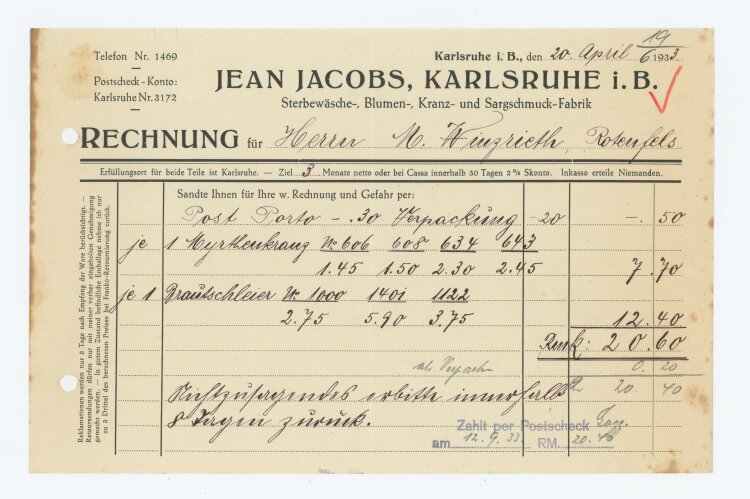 19
6
Telefon Nr. 1469
Karlsruhe i. B., den 20. April 1933
Postscheck-Konto:
Karlsruhe Nr. 3172
JEAN JACOBS, KARLSRUHE i. B.
Sterbewäsche-, Blumen-, Kranz- und Sargschmuck-Fabrik
RECHNUNG für Herrn M. Winzrieth, Rotenfels
Erfüllungsort für beide Teile ist Karlsruhe. — Ziel 3 Monate netto oder bei Cassa innerhalb 30 Tagen 2 % Skonto. Inkasso erteile Niemanden.
Reklamationen werden nur 8 Tage nach Empfang der Ware berücksichtigt. —
Retoursendungen dürfen nur mit meiner vorher eingeholten Genehmigung
gemacht werden. — In gutem Zustand befindliche Emballage nehme ich nur
zu 2 Drittel des berechneten Preises bei Franko-Retournierung zurück.
Sandte Ihnen für Ihre w. Rechnung und Gefahr per:
Post Porto -.30 Verpackung -20 -.50
je 1 Myrthenkranz No 606 608 634 643
1.45 1.50 2.30 2.45 7.70
je 1 Brautschleier No 1000 1401 1122
2.75 5.90 3.75 12.40
Rmk: 20.60
ab 0.20
20.40
Nichtzusagendes erbitte innerhalb
8 Tagen zurück.
Zahlt per Postscheck
am 12.9.33 RM. 20.40